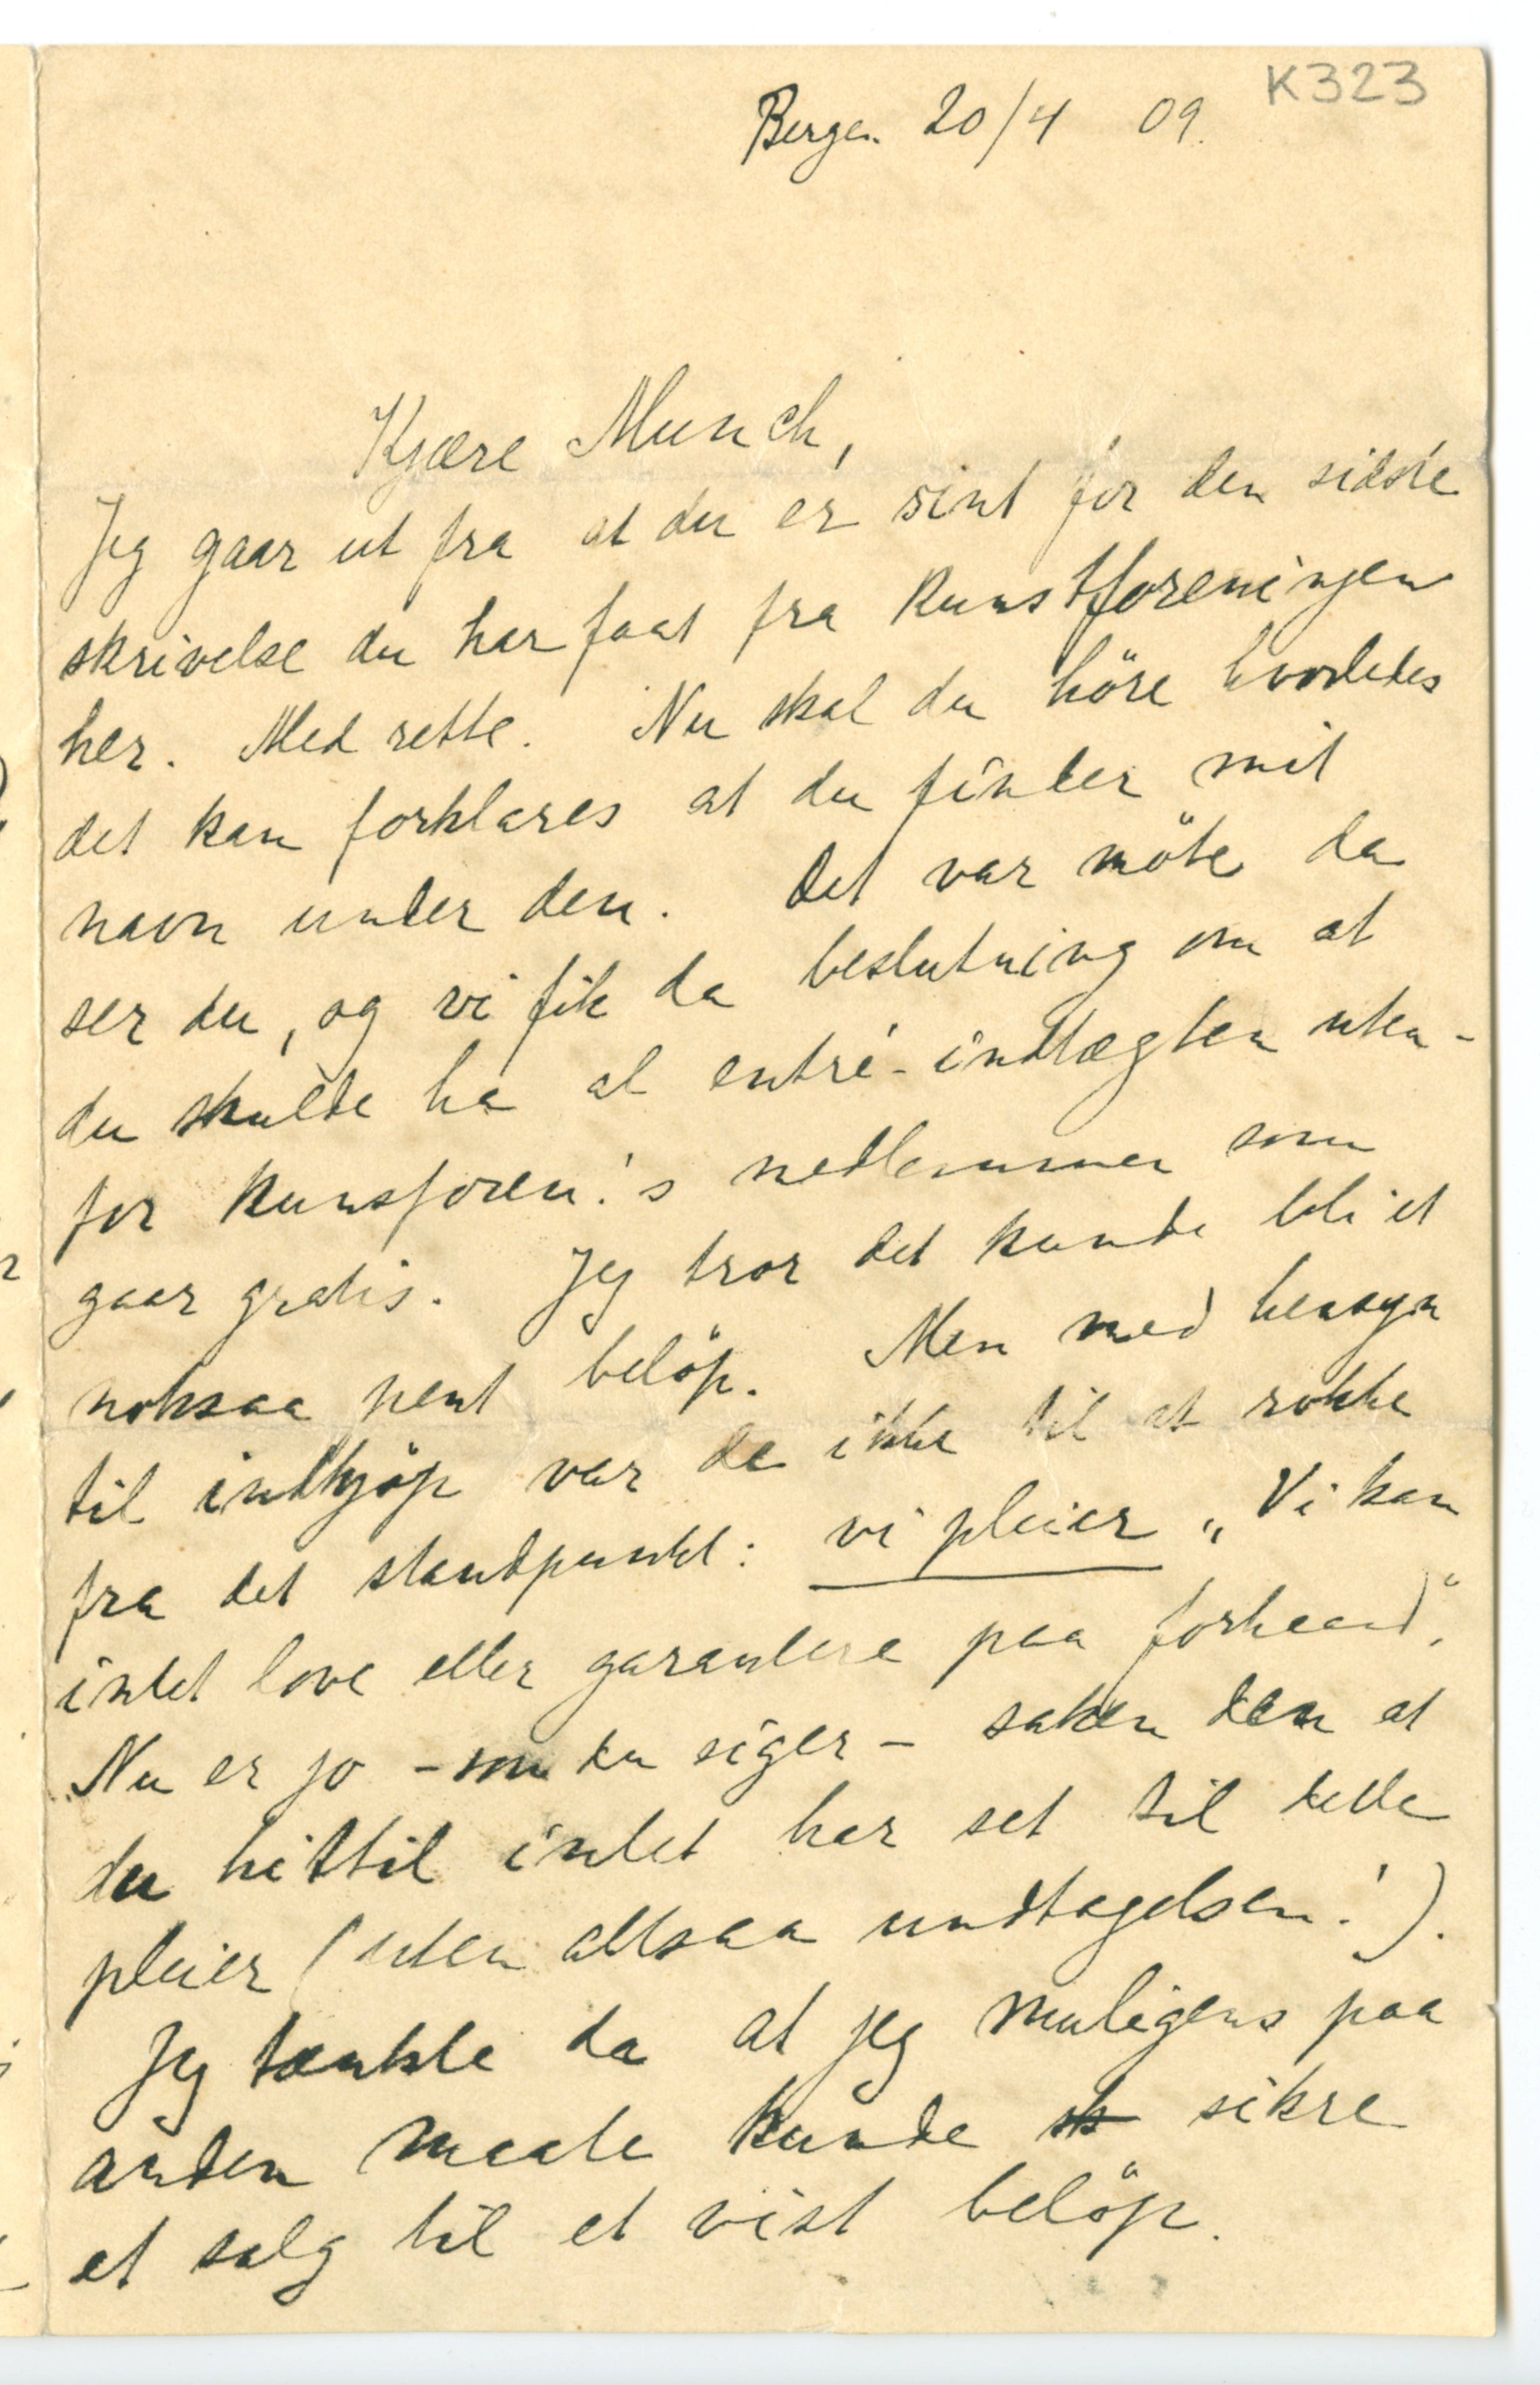 K323
Bergen 20/4 09.
Kjære Munch,
Jeg gaar ut fra at du er sint for den sidste
skrivelse du har faat fra Kunstforeningen
her. Med rette. Nu skal du höre hvorledes
det kan forklares at du finder mit
navn under den. Det var möte da
ser du, og vi fik da beslutning om at
du skulde ha al entré-indtægten uten-
for Kunsforen!s medlemmer som
gaar gratis. Jeg tror det kunde bli et
noksaa pent belöp. Men med hensyn
til indkjöp var de ikke til at rokke
fra det standpunkt: vi pleier „Vi kan
intet love eller garantere paa forhaand“.
Nu er jo – som du siger – saken den at
du hittil intet har set til dette
pleier (uten altsaa undtagelsen!).
Jeg tænkte da at jeg muligens paa
anden maate kunde sk sikre
et salg til et vist belöp.